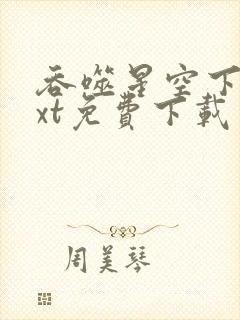 吞噬星空下
xt免費下載
周美琴